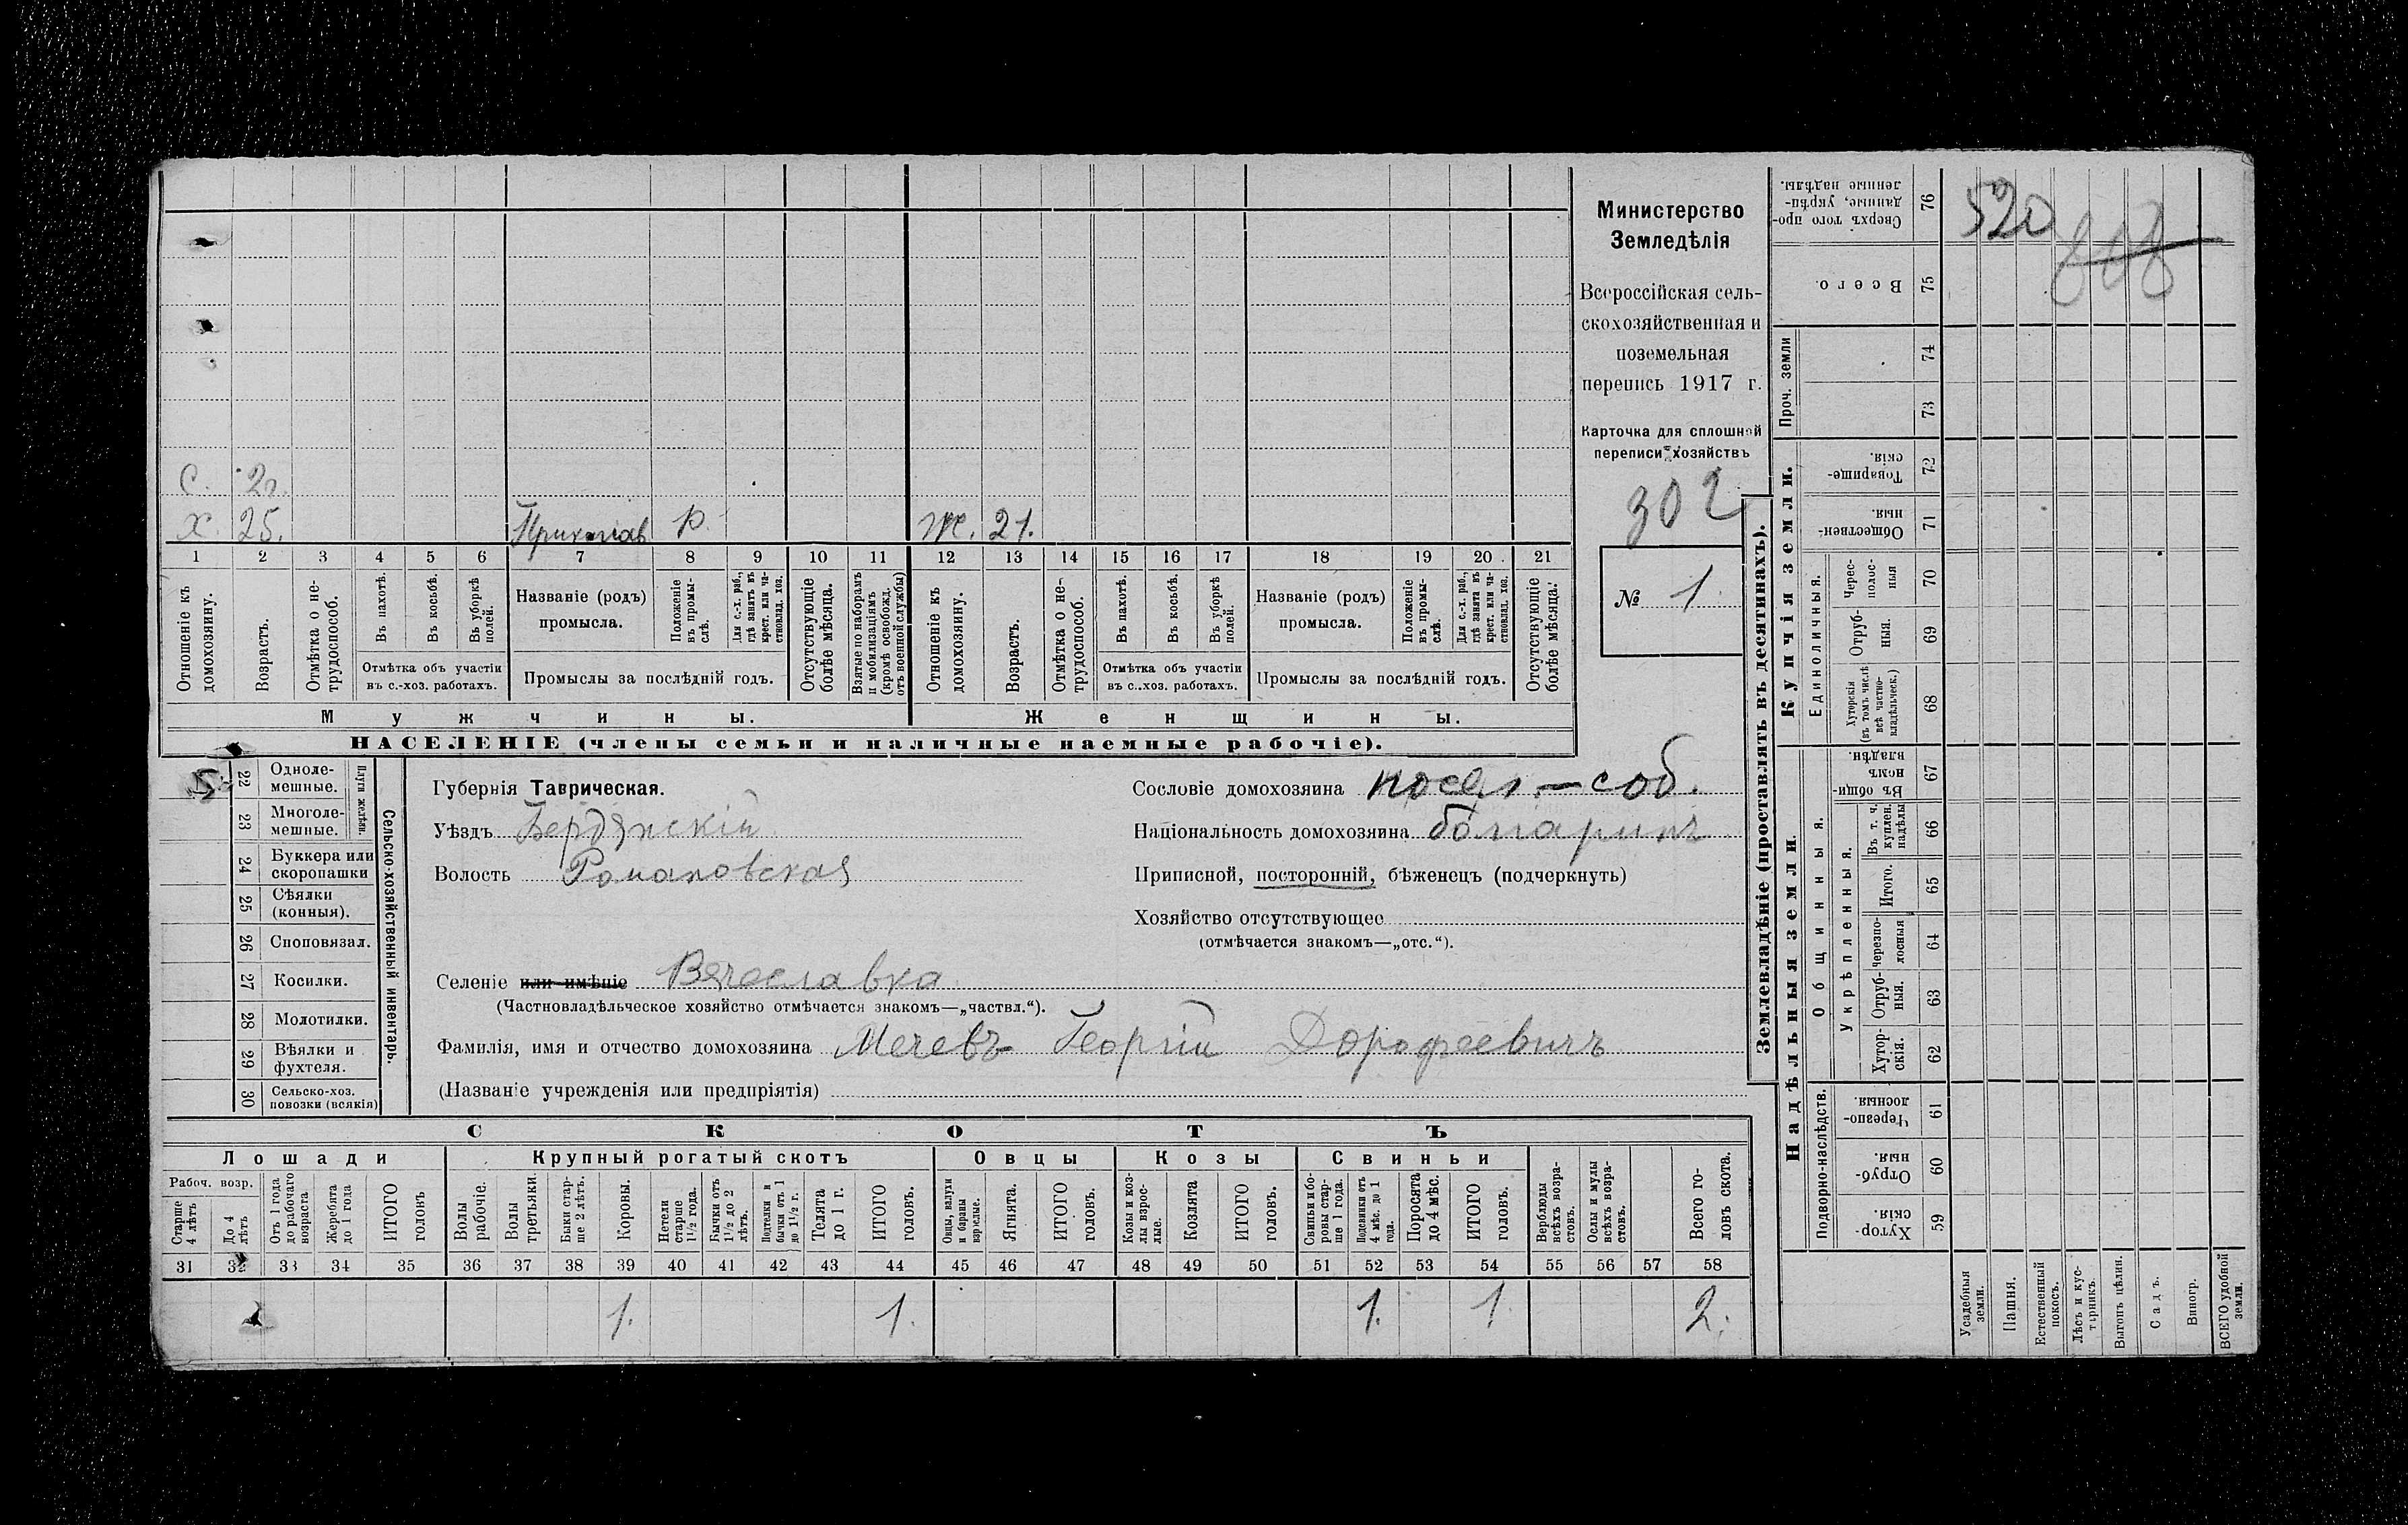 Министерство
Земледѣлія
Всероссійская сель-
скохозяйственная и
поземельная
перепись 1917 г.
Карточка для сплошной
переписи хозяйствъ
302
№ 1
С. 2 г.
Х. 25. Р. Ж. 21.
1 2 3 4 5 6 7 8 9 10 11 12 13 14 15 16 17 18 19 20 21
Отношеніе къ домохозяину.
Возрастъ.
Отмѣтка о не-трудоспособ.
Въ пахотѣ.
Въ косьбѣ.
Въ уборкѣ полей.
Отмѣтка объ участіи въ с.-хоз. работахъ.
Названіе (родъ) промысла.
Положеніе въ промы-слѣ.
Для с.-х. раб., гдѣ занятъ въ крест. или ча-стновлад. хоз.
Промыслы за послѣдній годъ.
Отсутствующіе болѣе мѣсяца.
Взятые по наборамъ и мобилизаціямъ (кромѣ освобожд. отъ военной службы)
Отношеніе къ домохозяину.
Возрастъ.
Отмѣтка о не-трудоспособ.
Въ пахотѣ.
Въ косьбѣ.
Въ уборкѣ полей.
Отмѣтка объ участіи въ с.-хоз. работахъ.
Названіе (родъ) промысла.
Положеніе въ промы-слѣ.
Для с.-х. раб., гдѣ занята въ крест. или ча-стновлад. хоз.
Промыслы за послѣдній годъ.
Отсутствующіе болѣе мѣсяца.
Мужчины. Женщины.
НАСЕЛЕНІЕ (члены семьи и наличные наемные рабочіе).
22 Одноле-мешные.
23 Многоле-мешные.
Плуги желѣзн.
24 Буккера или скоропашки
25 Сѣялки (конныя).
26 Сноповязал.
27 Косилки.
28 Молотилки.
29 Вѣялки и фухтеля.
30 Сельско-хоз. повозки (всякія)
Сельско-хозяйственный инвентарь.
Губернія Таврическая.
Уѣздъ Бердянскій
Волость Романовская
Селеніе или имѣніе Вячеславка
(Частновладѣльческое хозяйство отмѣчается знакомъ—„частвл.“).
Фамилія, имя и отчество домохозяина Мечевъ Георгій Дорофеевичъ
(Названіе учрежденія или предпріятія)
Сословіе домохозяина посел.-соб.
Національность домохозяина болгаринъ
Приписной, посторонній, бѣженецъ (подчеркнуть)
Хозяйство отсутствующее
(отмѣчается знакомъ—„отс.“).
СКОТЪ
Лошади Крупный рогатый скотъ Овцы Козы Свиньи
Рабоч. возр.
Старше 4 лѣтъ
До 4 лѣтъ
Отъ 1 года до рабочаго возраста
Жеребята до 1 года
ИТОГО головъ
Волы рабочіе.
Волы третьяки.
Быки стар-ше 2 лѣтъ.
Коровы.
Нетели старше 1½ года.
Бычки отъ 1½ до 2 лѣтъ.
Подтелки и бычки отъ 1 до 1½ г.
Телята до 1 г.
ИТОГО головъ.
Овцы, валухи и бараны взрослые.
Ягнята.
ИТОГО головъ.
Козы и коз-лы взрос-лые.
Козлята
ИТОГО головъ.
Свиньи и бо-ровы стар-ше 1 года.
Подсвинки отъ 4 мѣс. до 1 года.
Поросята до 4 мѣс.
ИТОГО головъ.
Верблюды всѣхъ возра-стовъ.
Ослы и мулы всѣхъ возра-стовъ.
Всего го-ловъ скота.
31 32 33 34 35 36 37 38 39 40 41 42 43 44 45 46 47 48 49 50 51 52 53 54 55 56 57 58
1. 1. 1. 1 2.
Землевладѣніе (проставлять въ десятинахъ).
Надѣльныя земли. Купчія земли.
Подворно-наслѣдств.
Общинныя.
Укрѣпленныя.
Единоличныя.
Проч. земли
59 Хутор-скія.
60 Отруб-ныя.
61 Черезпо-лосныя.
62 Хутор-скія.
63 Отруб-ныя.
64 Черезпо-лосныя
65 Итого.
66 Въ т. ч. куплен. надѣлы
67 Въ общин-номъ владѣн.
68 Хуторскія (въ томъ числѣ всѣ частно-владѣльческ.)
69 Отруб-ныя.
70 Черес-полос-ныя
71 Обществен-ныя.
72 Товарище-скія.
73
74
75 Всего.
76 Сверхъ того про-данные, укрѣп-ленные надѣлы.
Усадебныя земли.
Пашня.
Естественный покосъ.
Лѣсъ и кус-тарникъ.
Выгонъ цѣлин.
Садъ.
Виногр.
ВСЕГО удобной земли.
520
808